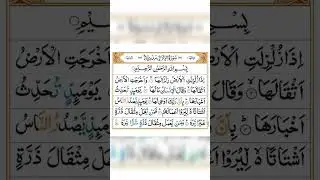 بِسْمِ اللهِ الرَّحْمٰنِ الرَّحِيْمِ
اِذَا زُلْزِلَتِ الْاَرْضُ زِلْزَالَهَا وَاَخْرَجَتِ الْاَرْضُ
اَثْقَالَهَا وَقَالَ الْاِنْسَانُ مَا لَهَا يَوْمَئِذٍ تُحَدِّثُ
اَخْبَارَهَا بِاَنَّ رَبَّكَ اَوْحٰى لَهَا يَوْمَئِذٍ يَّصْدُرُ النَّاسُ
اَشْتَاتًا لِّيُرَوْا اَعْمَالَهُمْ فَمَنْ يَّعْمَلْ مِثْقَالَ ذَرَّةٍ
خَيْرًا يَّرَهٗ وَمَنْ يَّعْمَلْ مِثْقَالَ ذَرَّةٍ شَرًّا يَّرَهٗ